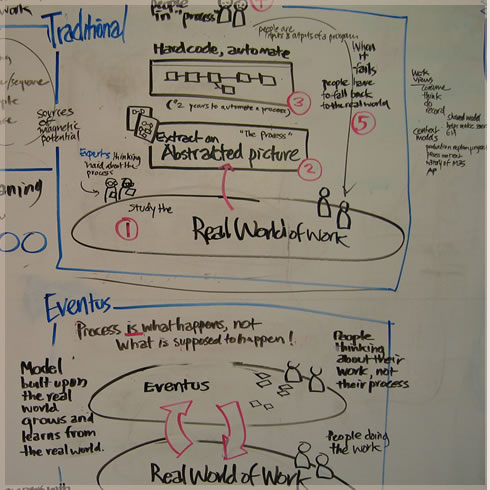 work
Traditional
people
"in" "process"
people are
inputs & outputs of a program
Hardcode, automate
(*2 years to automate a process)
3
When
it
fails
people have
to fall back
to the real world
5
work
views
think
do
record
context
models
shared model
sources
of
magnetic
potential
Extract an
"The Process"
Abstracted picture
2
Experts thinking
hard about the
process
Study the
1
Real World of Work
aning
Eventus
Process is what happens, not
what is supposed to happen!
Model
built upon
the real
world
grows and
learns from
the real world.
Eventus
People
thinking
about their
work, not
their process
People doing
the work
Real World of Work